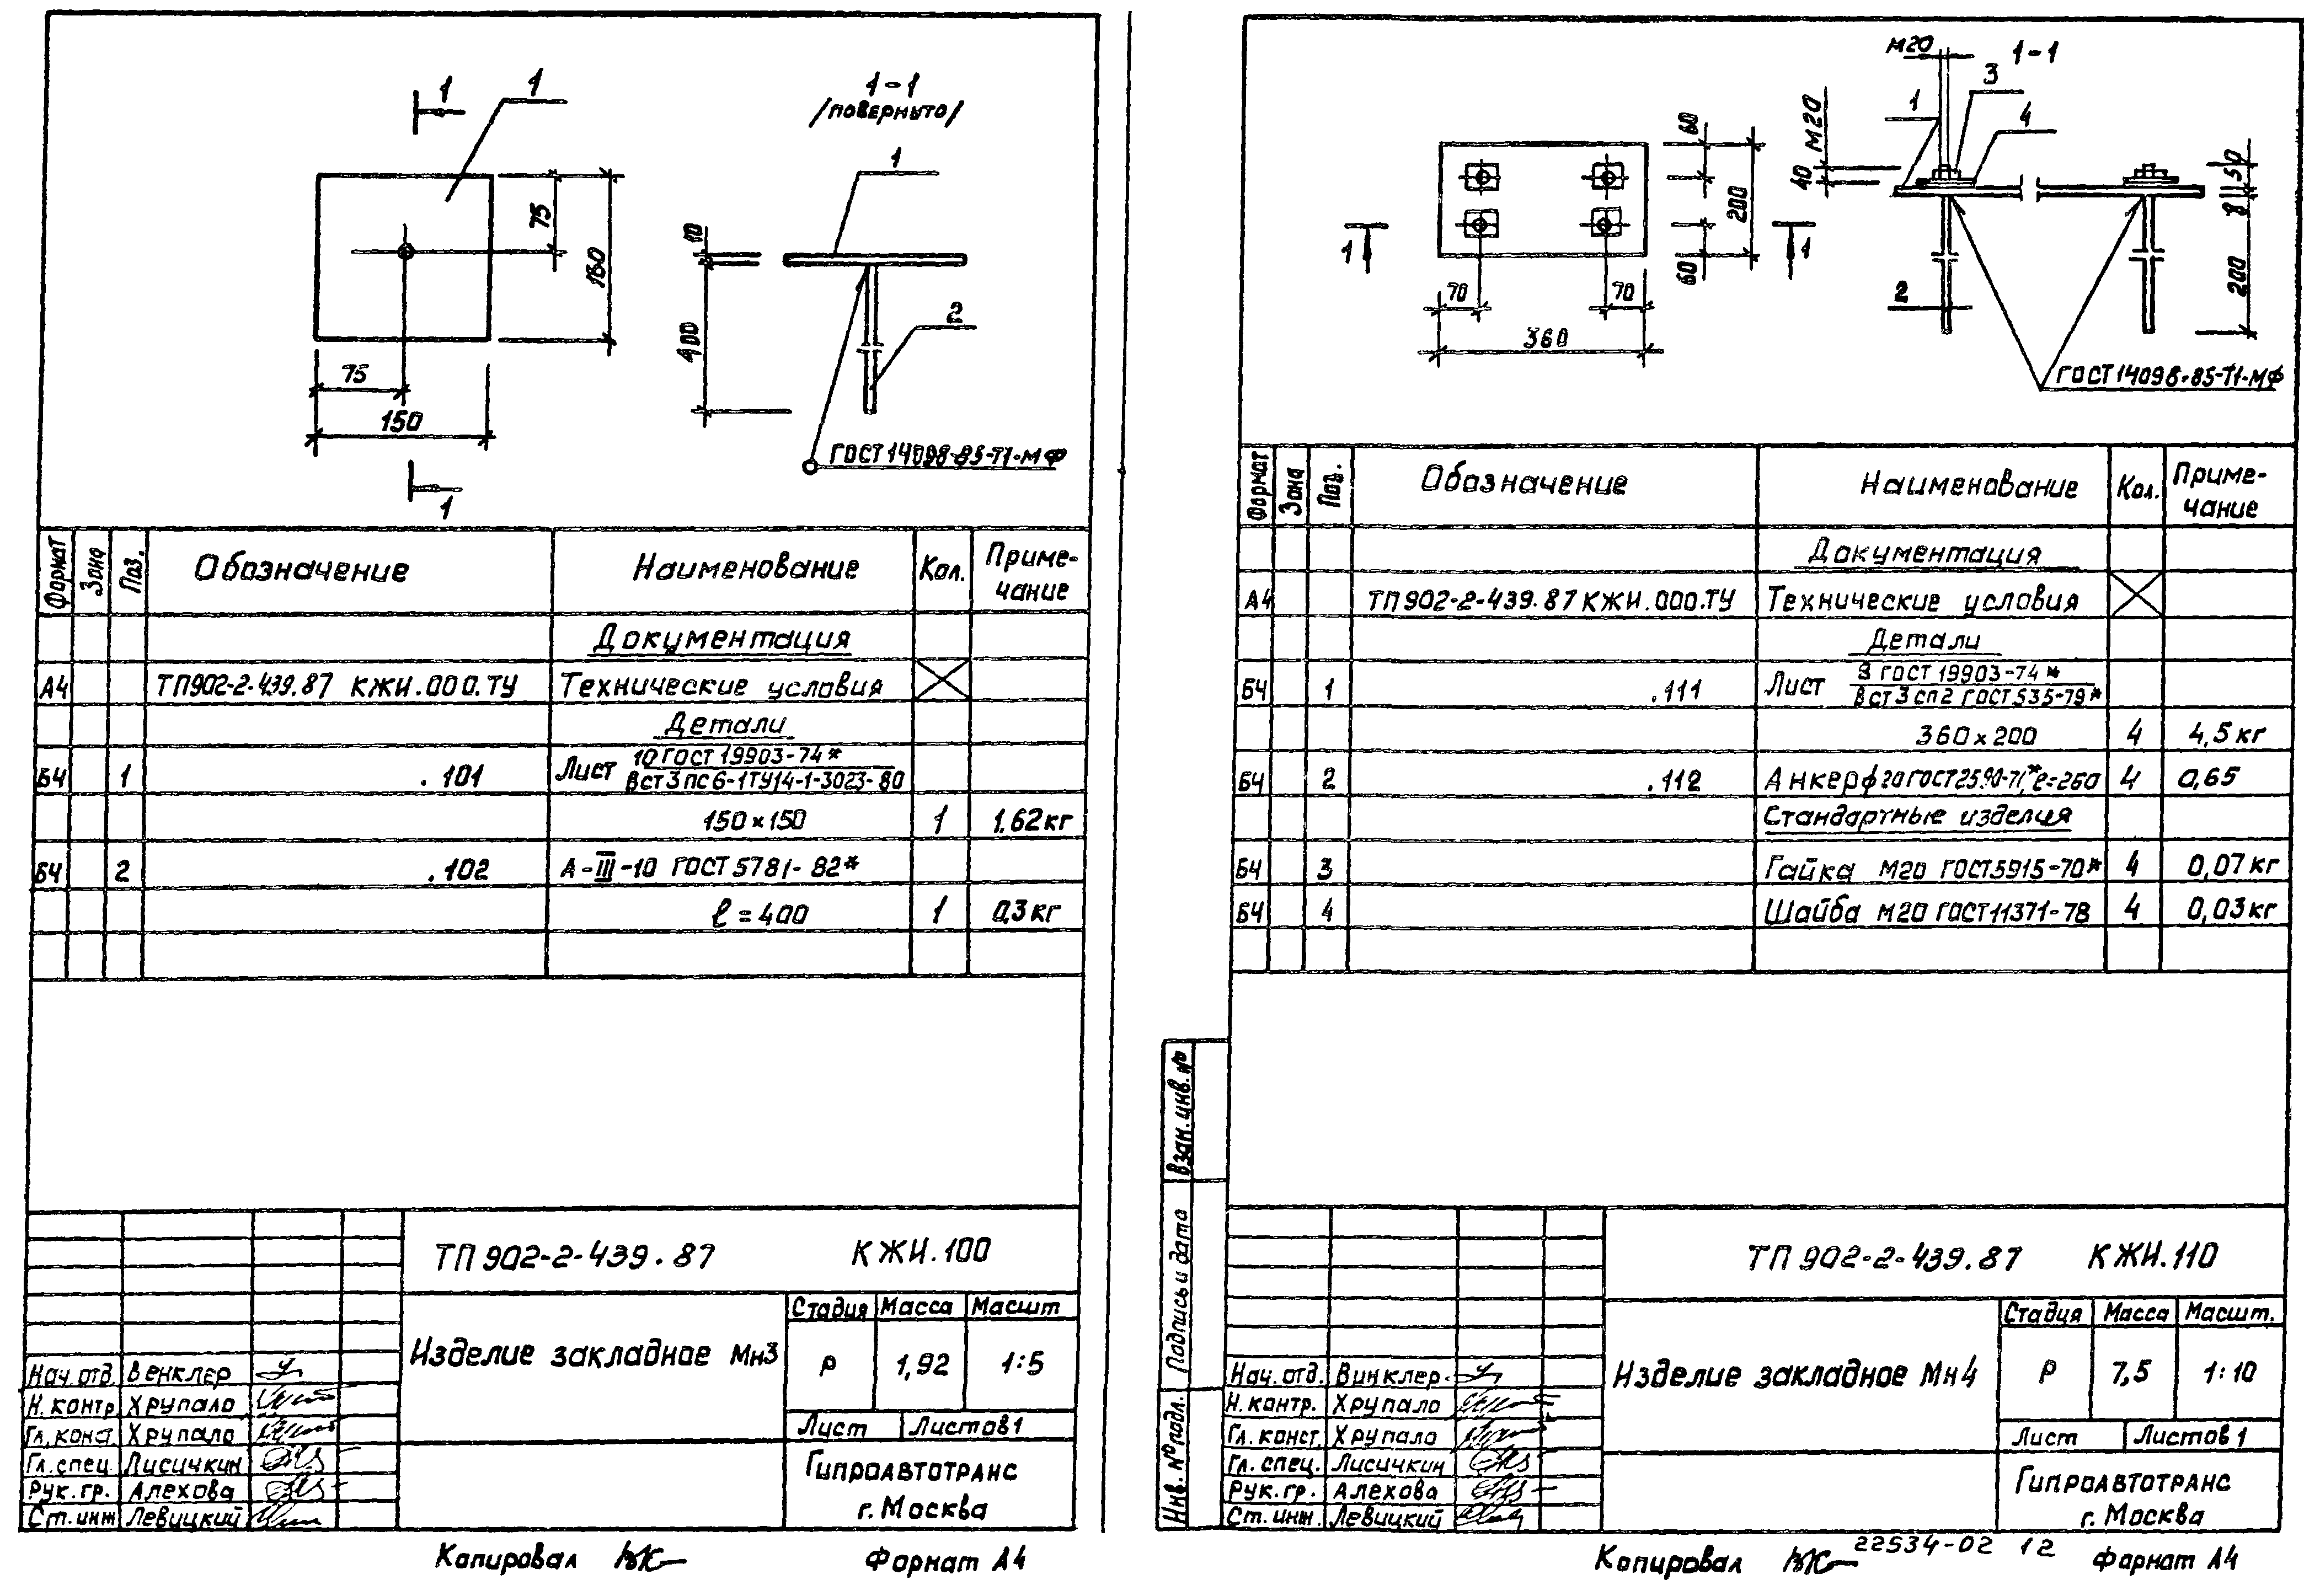 1 1
75
160
75
150
1
1-1
/повернуто/
1
10
400
2
ГОСТ 14098-85-Т1-МФ
Формат Зона Поз. Обозначение Наименование Кол. Приме-
чание
Документация
А4 ТП902-2-439.87 КЖИ.000.ТУ Технические условия
Детали
БЧ 1 .101 Лист 10 ГОСТ 19903-74*
Вст3пс6-1ТУ14-1-3023-80
150×150 1 1,62кг
БЧ 2 .102 А-III-10 ГОСТ 5781-82*
ℓ=400 1 0,3кг
ТП 902-2-439.87 КЖИ.100
Изделие закладное Мн3
Стадия Масса Масшт
Р 1,92 1:5
Лист Листов 1
Гипроавтотранс
г. Москва
Нач. отд. Венклер
Н. контр Хрупало
Гл. конст. Хрупало
Гл. спец Лисичкин
Рук. гр. Алехова
Ст. инж Левицкий
Копировал
Формат А4
60
200
60
1 1
70 70
360
М20 1-1
3
1
4
40 М20
50
8
200
2
ГОСТ 14098-85-Т1-МФ
Формат Зона Поз. Обозначение Наименование Кол. Приме-
чание
Документация
А4 ТП902-2-439.87 КЖИ.000.ТУ Технические условия
Детали
БЧ 1 .111 Лист 8 ГОСТ 19903-74*
Вст3сп2 ГОСТ 535-79*
360×200 4 4,5кг
БЧ 2 .112 Анкер ф20 ГОСТ 2590-71*, ℓ=260 4 0,65
Стандартные изделия
БЧ 3 Гайка М20 ГОСТ 5915-70* 4 0,07кг
БЧ 4 Шайба М20 ГОСТ 11371-78 4 0,03кг
Взам. инв. №
Подпись и дата
Инв. № подл.
ТП 902-2-439.87 КЖИ.110
Изделие закладное Мн4
Стадия Масса Масшт.
Р 7,5 1:10
Лист Листов 1
Гипроавтотранс
г. Москва
Нач. отд. Винклер
Н. контр. Хрупало
Гл. конст. Хрупало
Гл. спец. Лисичкин
Рук. гр. Алехова
Ст. инж. Левицкий
Копировал
22534-02 12
Формат А4